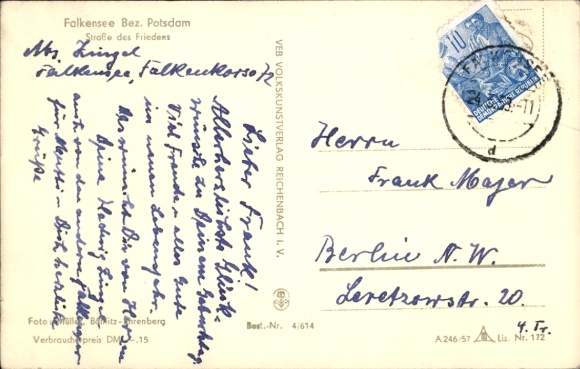 Falkensee Bez. Potsdam
Straße des Friedens
Abs. Zingel
Falkensee, Falkenkorso 72
Lieber Frank!
Allerherzlichste Glück-
wünsche zu Deinem Geburtstag.
Viel Freude u. alles Gute
im neuen Lebensjahr.
Das wünscht Dir von Herzen
Deine Hedwig Zingel
auch von den andern Falkenseer
für Mutti u. Dich herzliche
Grüße
VEB VOLKSKUNSTVERLAG REICHENBACH I. V.
10
DEUTSCHE
DEMOKRATISCHE REPUBLIK
d
Herrn
Frank Majer
Berlin N.W.
Levetzowstr. 20.
4. Tr.
Foto: Müller,
Verbraucherpreis DM -.15
Best.-Nr. 4/614
A 246/57 Liz. Nr. 172